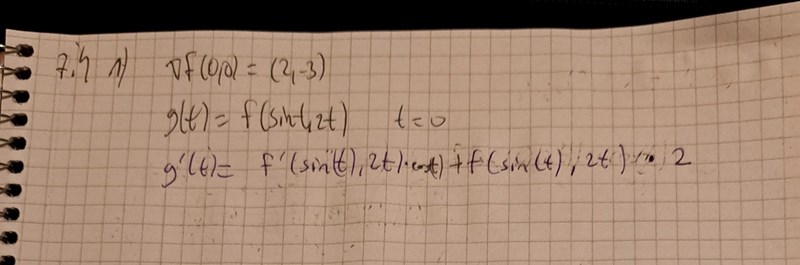 7.4 1) ∇f(0,0) = (2,-3)
g(t) = f(sint,2t) t=0
g'(t)= f'(sin(t), 2t)·cos(t) + f(sin(t), 2t) · 2